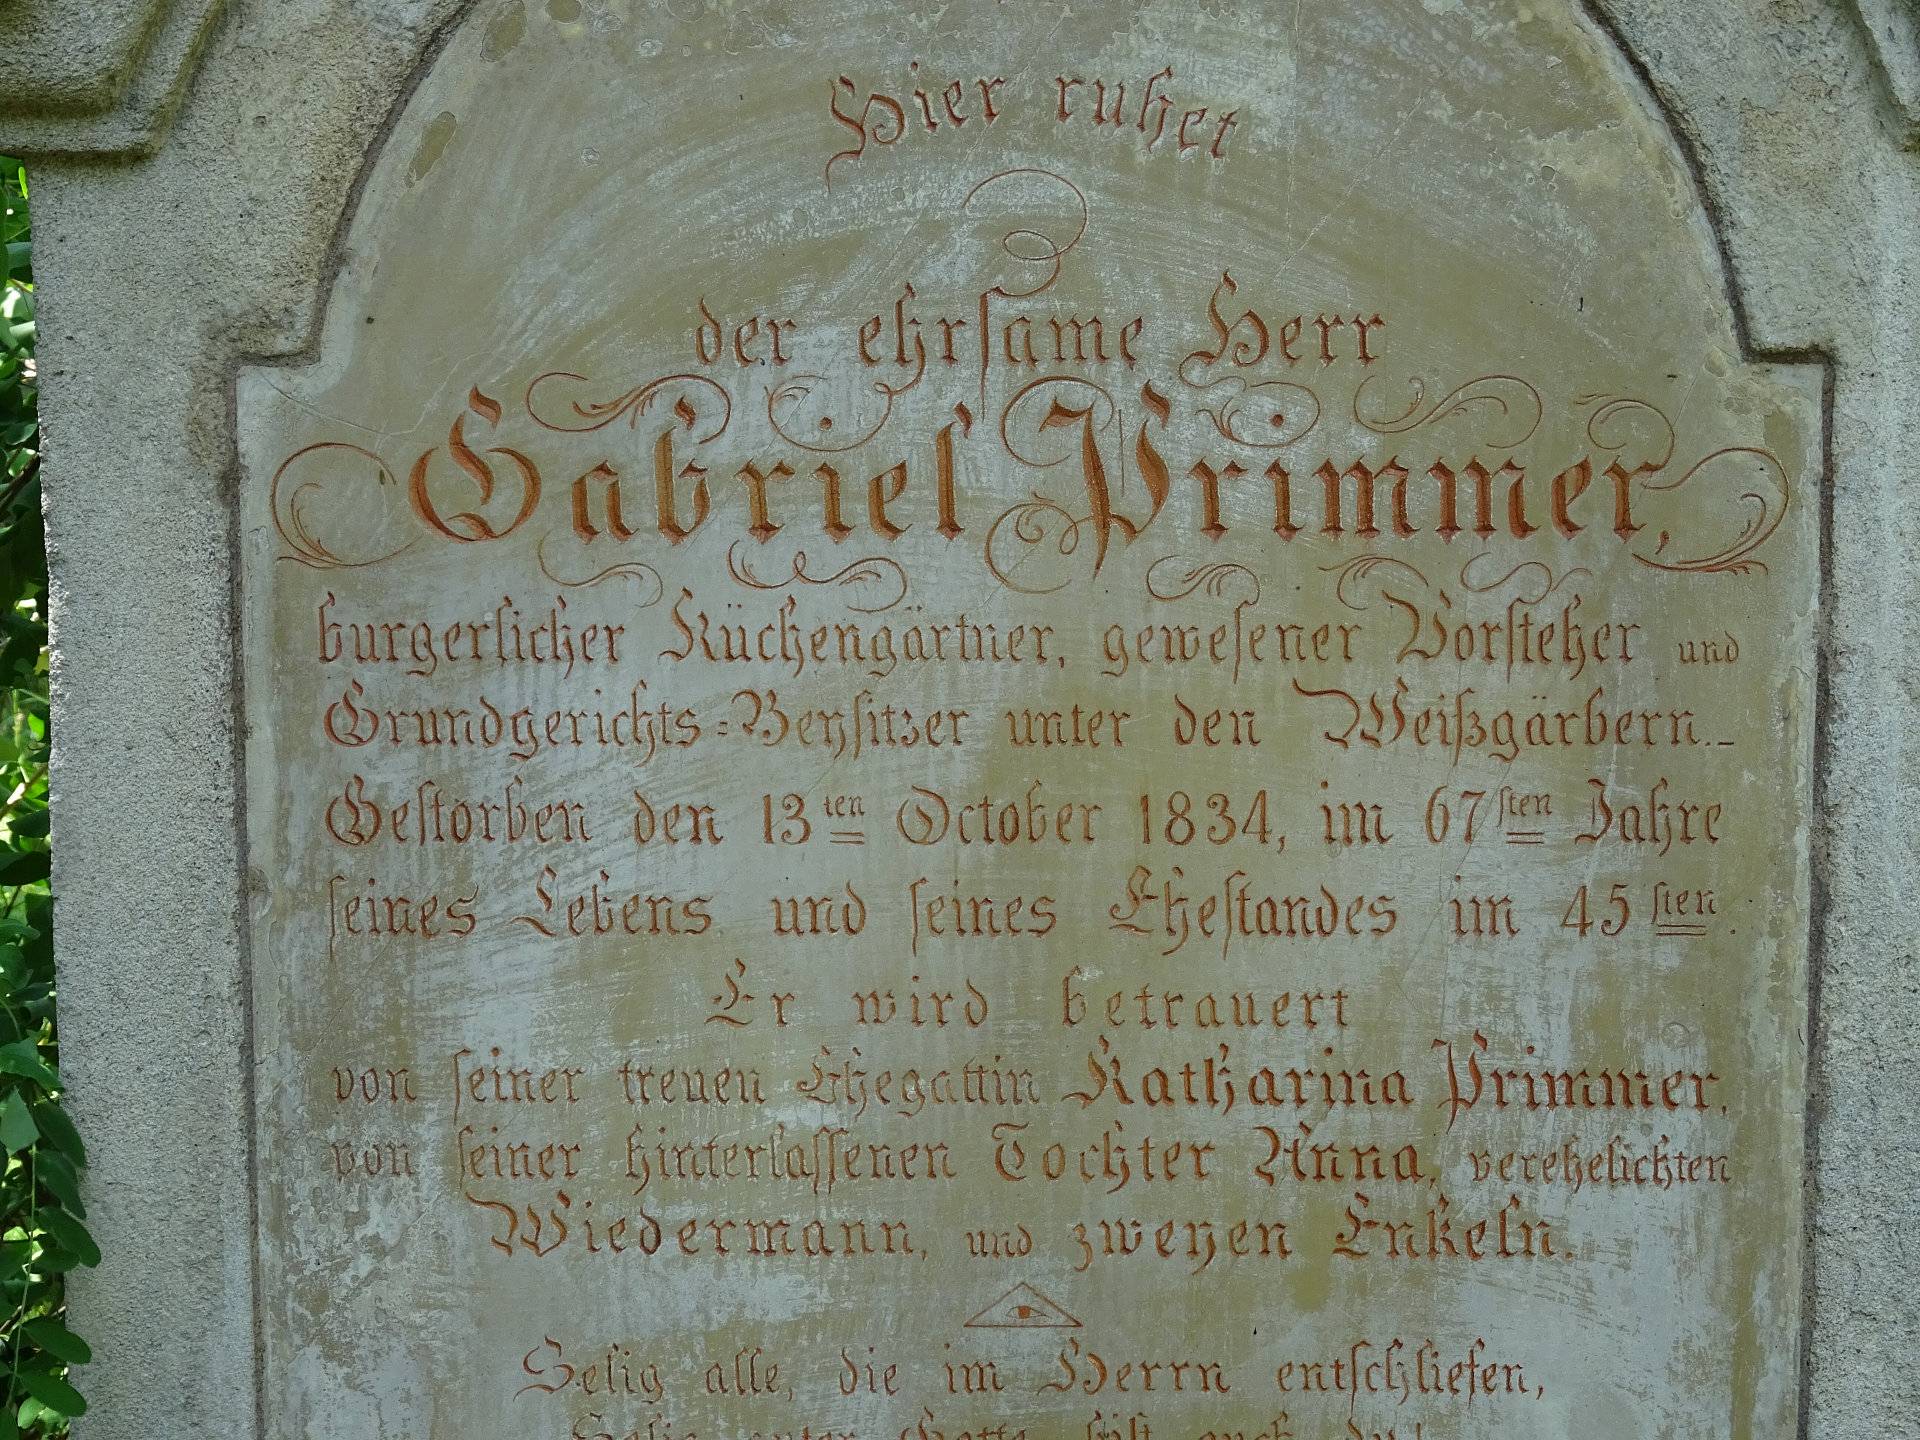 Hier ruhet
der ehrsame Herr
Gabriel Primmer,
burgerlicher Küchengärtner, gewesener Vorsteher und
Grundgerichts=Beysitzer unter den Weißgärbern.
Gestorben den 13ten October 1834, im 67sten Jahre
seines Lebens und seines Ehestandes im 45sten.
Er wird betrauert
von seiner treuen Ehegattin Katharina Primmer,
von seiner hinterlassenen Tochter Anna, verehelichten
Wiedermann, und zweyen Enkeln.
Selig alle, die im Herrn entschliefen,
Selig, guter Gatte, bist auch du!